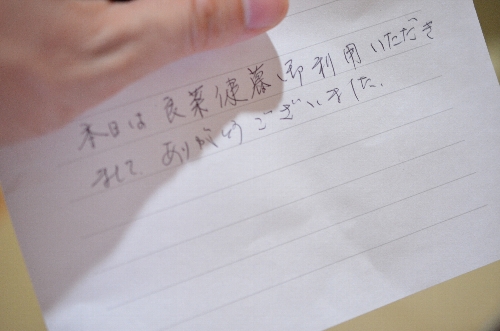 本日は良菜健暮御利用いただき
まして、ありがとうございました。